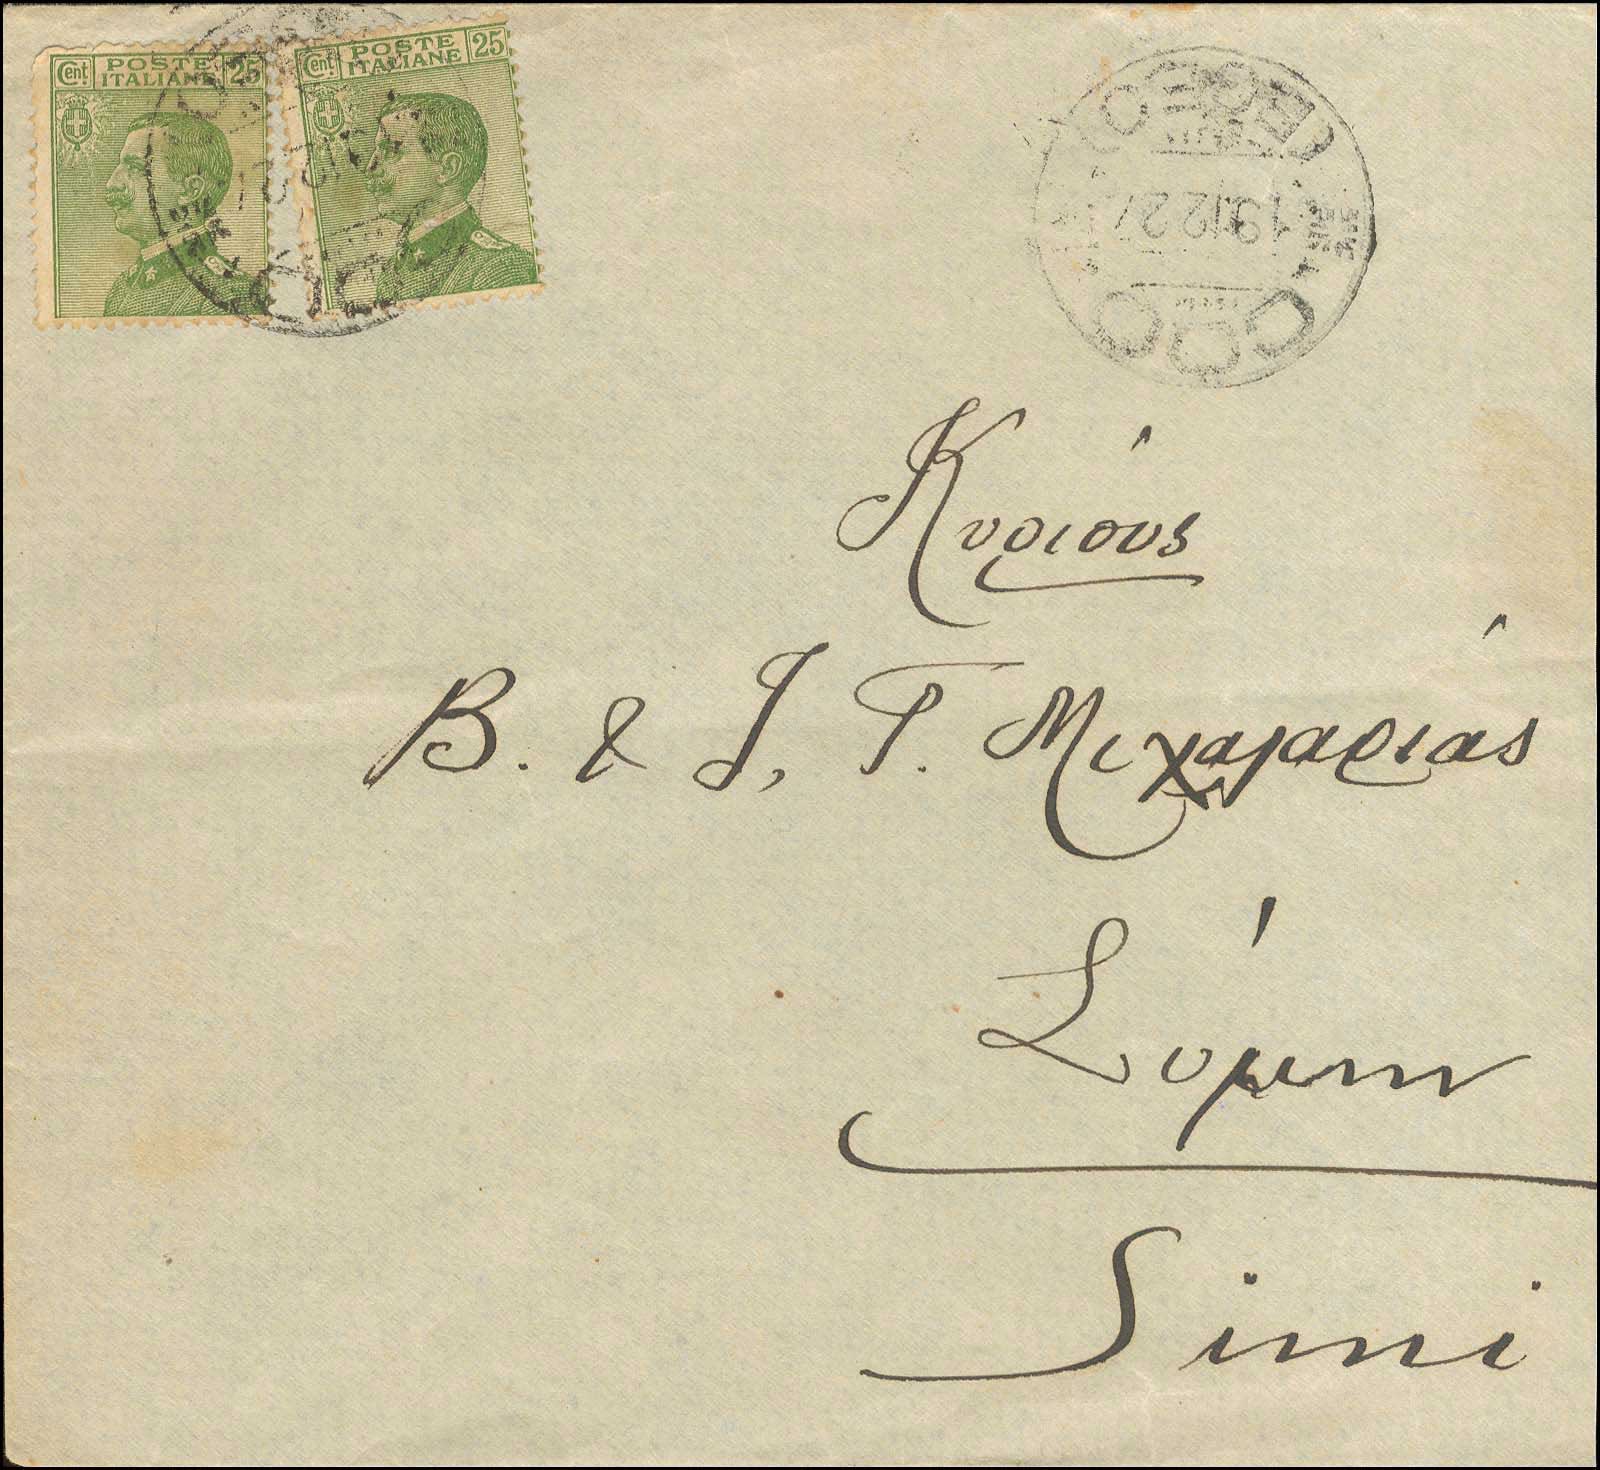 Cent. POSTE ITALIANE 25
Cent. POSTE ITALIANE 25
19 12 27
Κυρίους
Β. & Ι. Γ. Μιχαλαριάς
Σύμην
Simi